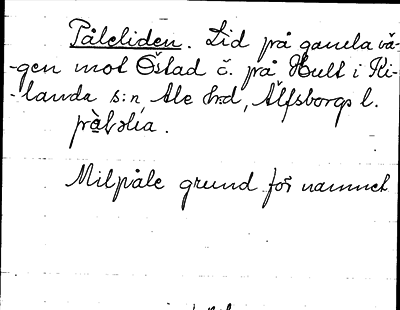 Påleliden. Lid på gamla vä-
-gen mot Östad č. på Hult i Ki-
-landa s:n, Ale h:d, Älfsborgs l.
Milpåle grund för namnet